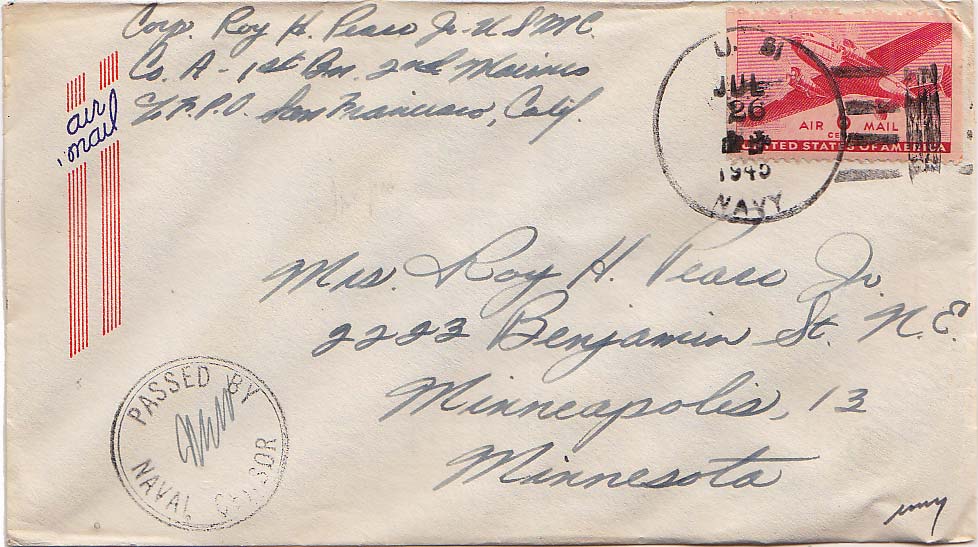 Corp. Roy H. Pearo Jr. U S M C.
Co. A - 1st Bn. 2nd Marines
F.P.O. San Francisco, Calif.
air
mail
U. S.
JUL
26
1945
NAVY
AIR MAIL
UNITED STATES OF AMERICA
Mrs. Roy H. Pearo Jr.
2223 Benjamin St. N.E.
Minneapolis, 13
Minnesota
PASSED BY
NAVAL CENSOR